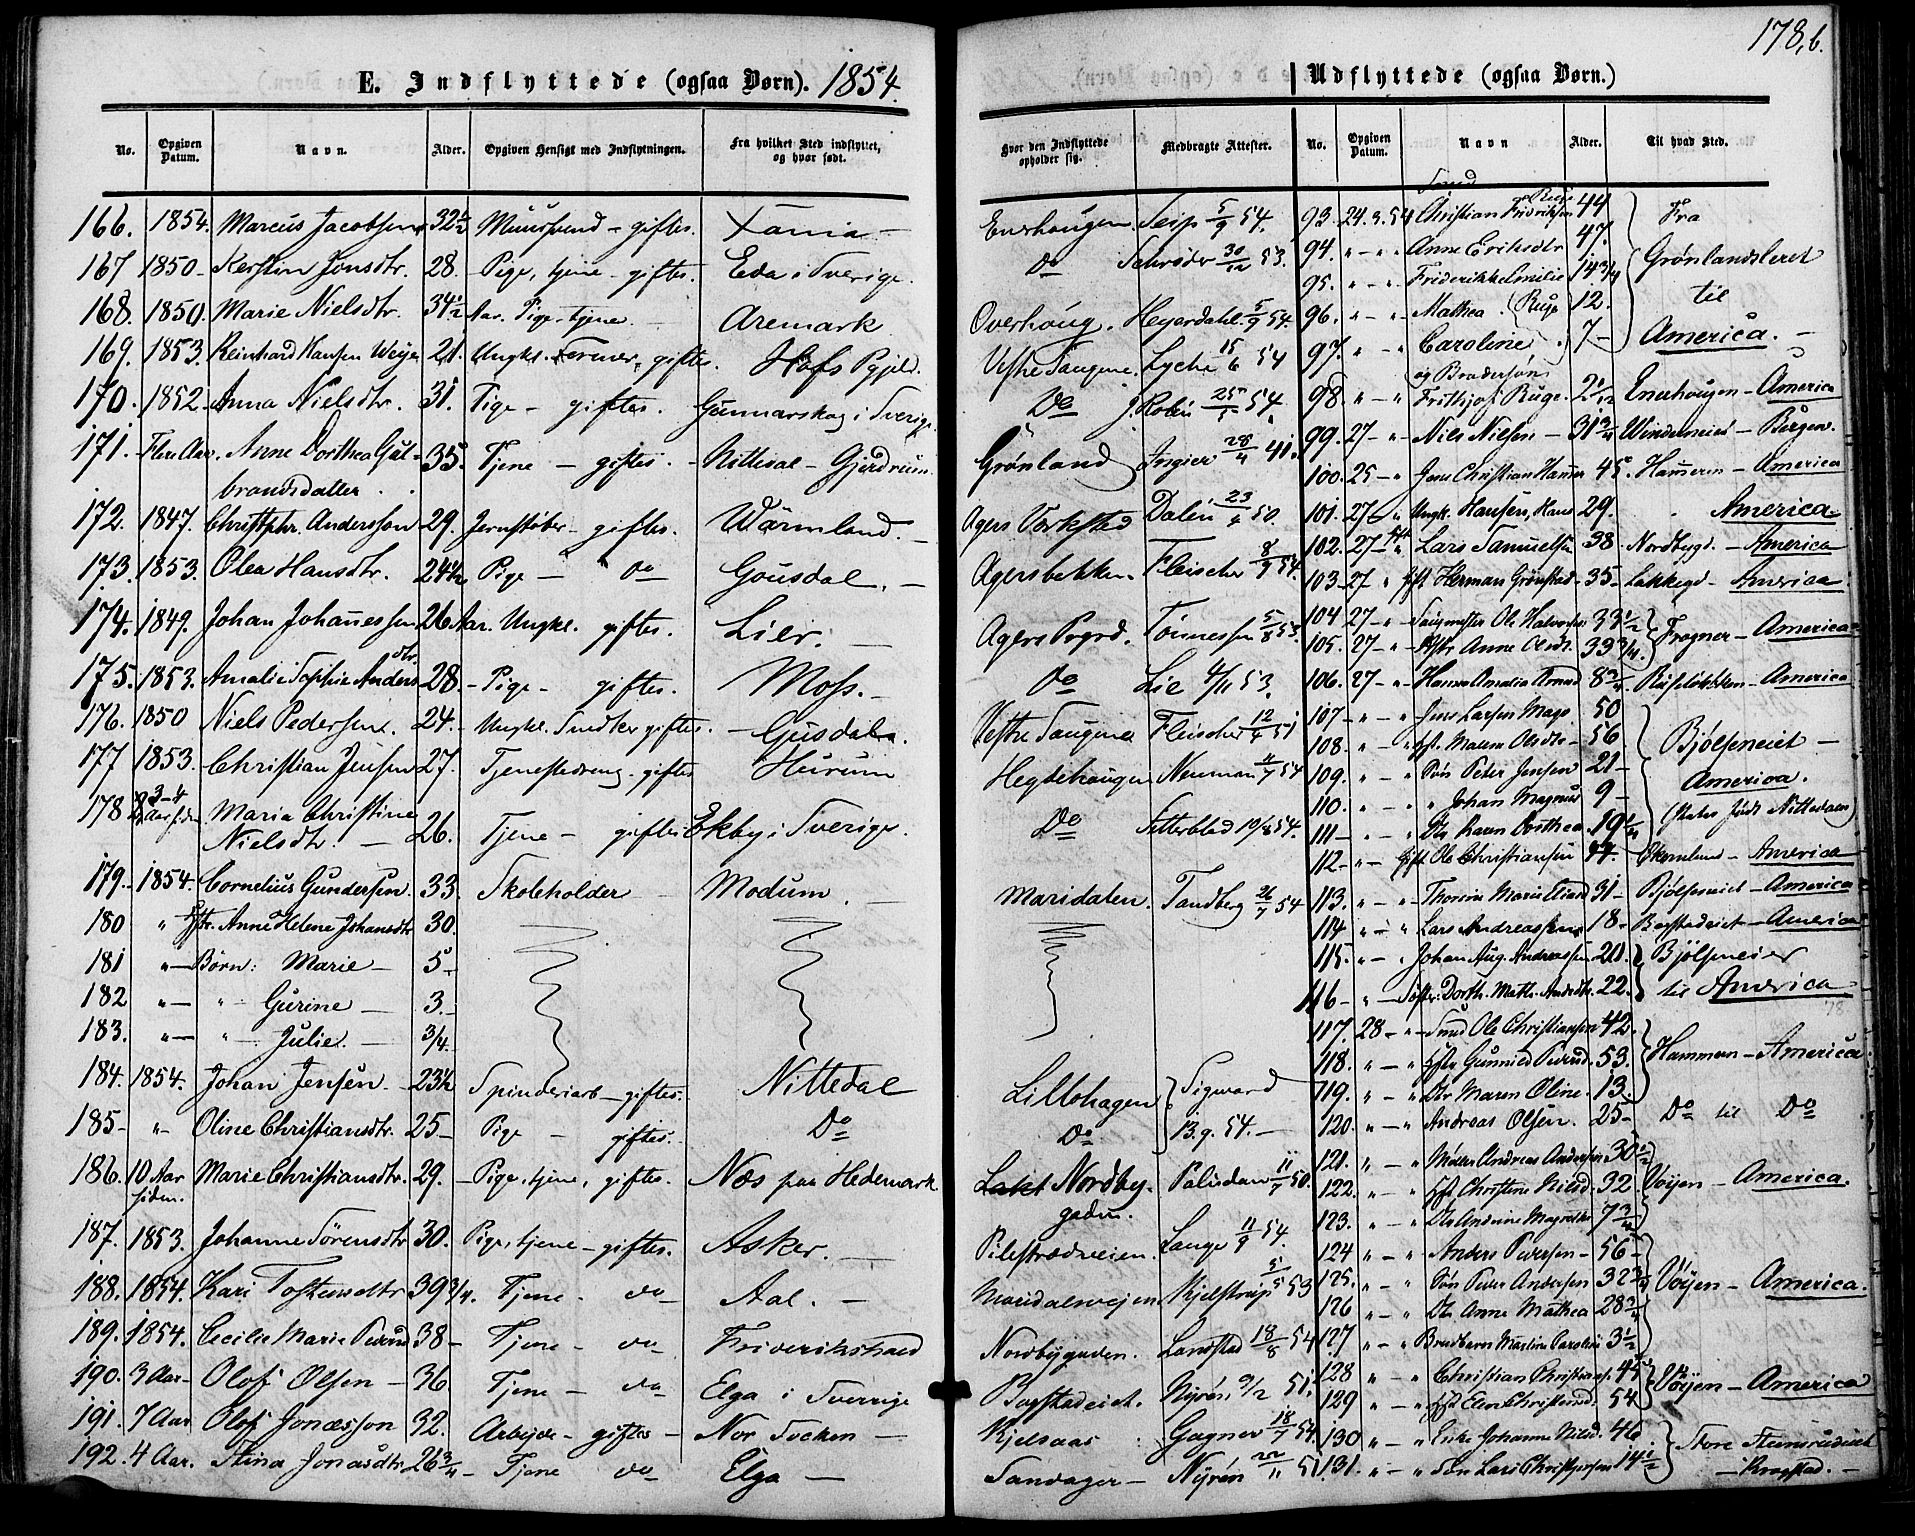 178,b.
E. Indflyttede (ogsaa Børn). 1854.
Udflyttede (ogsaa Børn.)
No. Opgiven Datum. Navn. Alder. Opgiven Hensigt med Indflytningen. Fra hvilket Sted indflyttet, og hvor født.
Hvor den Indflyttede opholder sig. Medbragte Attester. No. Opgiven Datum. Navn Alder. Til hvad Sted.
166. 1854. Marcus Jacobsen 32½ Muursvend - giftes.
167 1850 - Kerstin Jonsdtr. 28. - Pige, tjene - giftes. Eda i Sverige.
168. 1850. Marie Nielsdtr. 34½ Aar. Pige, tjene. Aremark
169. 1853. Reinhard Hansen 21. Ungkl. Former, giftes. Hofs Pgjeld.
170. 1852. Anna Nielsdtr. 31. Pige - giftes. Gunnarskog i Sverige.
171. Flere Aar Anne Dorthea Gul- 35. Tjene - giftes. - Nittedal - Gjerdrum
brandsdatter.
172. 1847. Christopher Andersson 29. Jernstøber - giftes. Wärmland. -
173. 1853. Olea Hansdtr. 24½ Pige - do Gousdal. -
174. 1849. Johan Johannessen 26 Aar. Ungkl. giftes. Lier. -
175. 1853. Amalie Sophie Andersdtr. 28. - Pige - giftes. Moss. -
176. 1850 Niels Pedersen. 24. - Ungkl. Snedker giftes. - Gusdal.
177 1853. Christian Jensen 27. Tjenestedreng - giftes Hurum
178 3-4 Aar siden Maria Christine
Nielsdtr. - 26. Tjene - giftes Ekby i Sverige.
179. - 1854. Cornelius Gundersen. 33. Skoleholder - Modum.
180 " Hstr. Anne Helene Johansdtr 30.
181 " - Børn: Marie - 5 -
182 " - " Gurine - 3. -
183. " - " Julie. - 3/4 -
184. 1854. Johan Jensen - 23½ Spinderiarb - giftes. Nittedal
185 - " Oline Christiansdtr. 25 - Pige - giftes. Do
186. 10 Aar siden. Marie Christiansdtr. 29. - Pige, tjene, giftes. Næs paa Hedemark
187. 1853. Johanne Sörensdtr 30. Pige, tjene - giftes. Asker. -
188. 1854. Kari Tostensdtr 39 3/4. Tjene - do Aal. -
189. 1854. Cecilie Marie 38 - Tjene - do Friderikshald
190. 3 Aar - Olof Olsen - 36. Tjene - do Elga i Sverrige
191. 7 Aar Olof Jonasson 32. Arbejde - giftes - Nor Socken -
192. 4 Aar. Stina Jonasdtr 26¾ - Tjene do Elga -
Enerhougen. Seip 5/9 54.
do Schrøder 30/12 53.
Overhoug. Heyerdahl 5/9 54.
Vestre Lyche 15/6 54
Do J. Robin
Grønland Ingier 28/4 41.
Agers Værksted Dalen 23/4 50.
Agersbekken. Fleischer 8/9 54.
Agers Pegrd. Tönnessen 5/8 53.
do Lie 4/11 53.
Fleischer 12/4 51
Hegdehaugen Neuman 11/7 54
Do Setterblad 10/8 54.
Maridalen. Tandberg 26/7 54
Lillohagen Sigward
Do 13.9.54. -
Nordby-
gaden. 11/7 50.
Pilestrædveien. Lange 11/9 54.
Maridalsvejen Kjelstrup 5/5 53
Nordbygaden. Landstad 18/8 54
Bagstadeiet. Nyrén 9/2 51.
Kjelsaas Gagner 18/7 54.
Sandager - Nyrén 22/11 51.
93. 24.3.54 Smed Christian Fridriksen Ruge 44
94. " - " - Anne Eriksdtr 47.
95. " - " - Friderikke Emilie 14 3/4
96. " - " Mathea. Ruge 12.
97. " - " Caroline. 7 -
Fra
Grønlandsleret
til
America. -
og Brodersøn
98. " - " Frithjof Ruge. 2 1/12 Enerhougen - America
99. 27 - " Nils Nielsen - 31¾ - Bergen.
100. 25 - " Jens Christian Hammer 45. Hammeren - America
101. 27 - " Ungk. Hansen, Hans 29. America
102. 27 - " Lars Samuelsen 38. Nordbygd. - America
103. 27 " gft Herman Grønstad - 35 - Lakkegd - America
104 27 - " Saugmester Ole Halvorsen 33½
105. 27 - " Hstr Anne Olsdtr. 33 3/4.
Frogner - America
106. 27 - " Hanna Amalia 8 - America
107 - " - " Jens Larsen Mago. 50
108. " - " Hst. Maren Olsdtr - 56
109. " - " Søn Peter Jensen 21 -
110. " - " " Johan Magnus 9 -
111 - " - " Dtr Karen Dorthea 19¼
Bjølseneiet -
America.
112 - " - Gift Ole Christiansen 47. - America
113. " - " Thorine Marie 31 - Bjølseneiet - America
114 " - " Lars Andreassen 18 - Bagstadeiet - America
115. " - " Johan Aug. Andreassen 20.
116 - " - Søster: Dorth. Math. Andrdtr. 22.
Bjølseneier
til America
117. 28 - " Smed Ole Christiansen 42.
118. " - " Hstr Gunnild 53.
119. " - " Dtr Maren Oline. 13.
Hammeren - America.
120. " - " Andreas Olsen. 25 - Do til Do
121. " - " Andreas Andersen 30½
122. " - " Hst Christine Nilsd. 32
123. " - " Dtr Andrine 7¾
Vøyen - America.
124 " - " Anders Pedersen - 56 -
125. " - " Søn Peder Andersen 32
126 " - " Dtr Anne Mathea 28¾
127 " - " Caroline 3½
Vøyen - America.
128 " - " Christian Christians. 45
129 " - " Hst Elen 54
Vøyen - America
130 " - " Enke Johanne Nilsd. 46
131. " - " Søn Lars Christophersen 14½
Store
- Kragstad. -